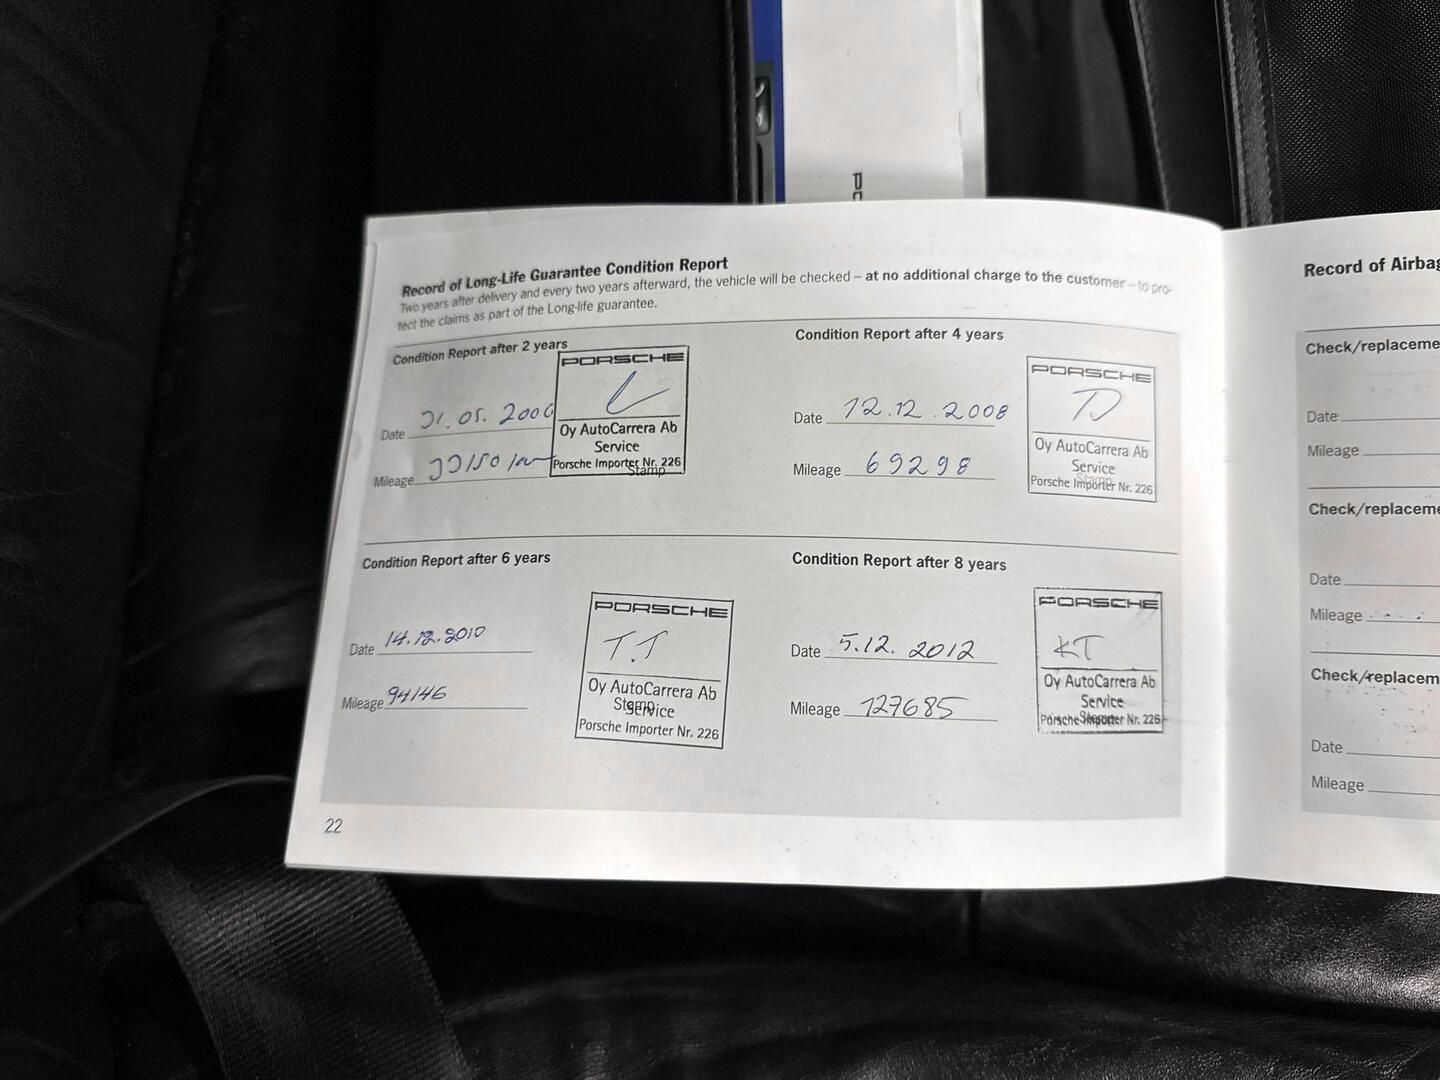 PO
Record of Long-Life Guarantee Condition Report
Two years after delivery and every two years afterward, the vehicle will be checked – at no additional charge to the customer – to pro-
tect the claims as part of the Long-life guarantee.
Condition Report after 2 years
PORSCHE
Date
Oy AutoCarrera Ab
Service
Mileage
Porsche Importer Nr. 226
Stamp
Condition Report after 4 years
PORSCHE
Date 12.12.2008
Oy AutoCarrera Ab
Service
Mileage 69298
Stamp
Porsche Importer Nr. 226
Condition Report after 6 years
PORSCHE
T.T
Date 14.12.2010
Oy AutoCarrera Ab
Stamp
Service
Mileage 94146
Porsche Importer Nr. 226
Condition Report after 8 years
PORSCHE
KT
Date 5.12.2012
Oy AutoCarrera Ab
Service
Mileage 127685
Stamp
Porsche Importer Nr. 226
22
Record of Airbag
Check/replaceme
Date
Mileage
Check/replaceme
Date
Mileage
Check/replacem
Date
Mileage